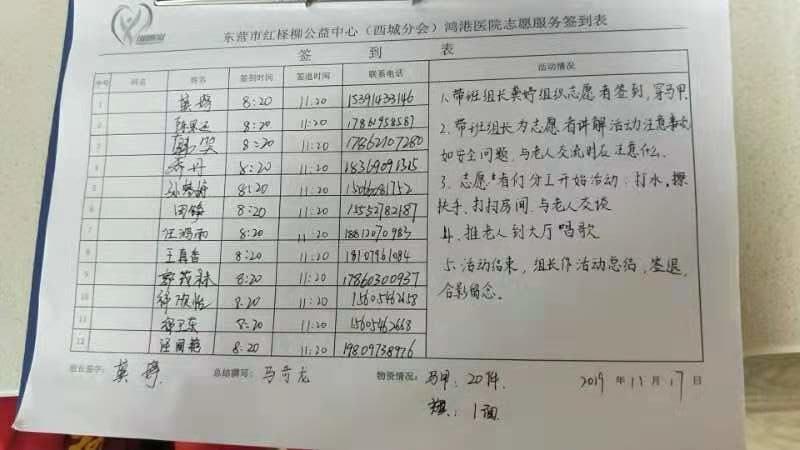 东营市红柽柳公益中心（西城分会）鸿港医院志愿服务签到表
签 到 表
序号 网名 姓名 签到时间 签退时间 联系电话 活动情况
1 莫婷 8:20 11:20 15391433146
2 8:20 11:20 17861958587
3 8:20 11:20 17862107280
4 乔丹 8:20 11:20 18369091325
5 8:20 11:20 15066081752
6 田铮 8:20 11:20 15552782187
7 汪鸿雨 8:20 11:20 18812070983
8 王真香 8:20 11:20 18107961084
9 8:20 11:20 17860300937
10 8:20 11:20 15605462658
11 8:20 11:20 15605462668
12 8:20 11:20 19809738976
1、带班组长莫婷组织志愿者签到，穿马甲.
2、带班组长为志愿者讲解活动注意事项
如安全问题，与老人交流时应注意什么.
3、志愿者们分工开始活动：打水，擦
扶手、打扫房间、与老人交谈
4、推老人到大厅唱歌
5、活动结束，组长作活动总结，签退，
合影留念。
组长签字： 莫婷 总结撰写： 马奇龙 物资情况： 马甲：20件. 2019年11月17日
旗：1面